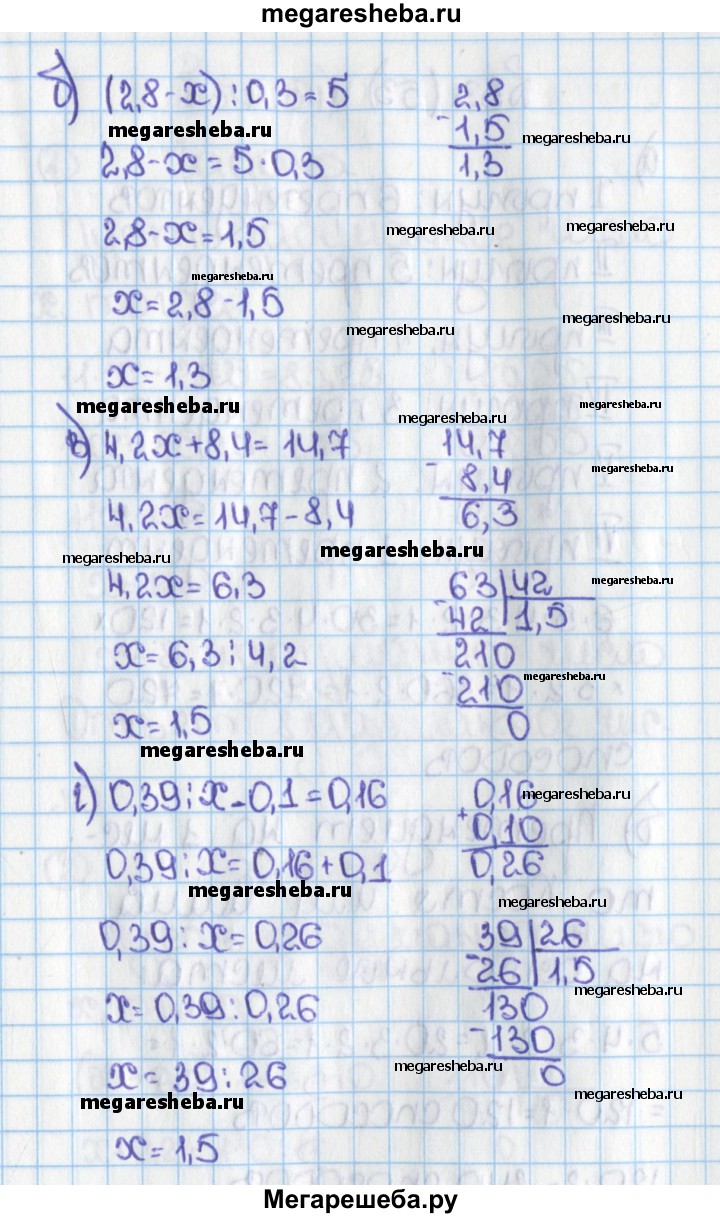 megaresheba.ru
б) (2,8-x):0,3=5
2,8
megaresheba.ru
-1,5
megaresheba.ru
2,8-x=5·0,3
1,3
2,8-x=1,5
megaresheba.ru
megaresheba.ru
megaresheba.ru
x=2,8-1,5
megaresheba.ru
megaresheba.ru
x=1,3
megaresheba.ru
megaresheba.ru
megaresheba.ru
в) 4,2x+8,4=14,7
14,7
-8,4
megaresheba.ru
4,2x=14,7-8,4
6,3
megaresheba.ru
megaresheba.ru
4,2x=6,3
63|42
megaresheba.ru
-42|1,5
x=6,3:4,2
210
-210
megaresheba.ru
x=1,5
0
megaresheba.ru
г) 0,39:x-0,1=0,16
0,16
megaresheba.ru
+0,10
0,39:x=0,16+0,1
0,26
megaresheba.ru
megaresheba.ru
0,39:x=0,26
39|26
-26|1,5
megaresheba.ru
x=0,39:0,26
130
-130
megaresheba.ru
x=39:26
0
megaresheba.ru
megaresheba.ru
x=1,5
Мегарешеба.ру